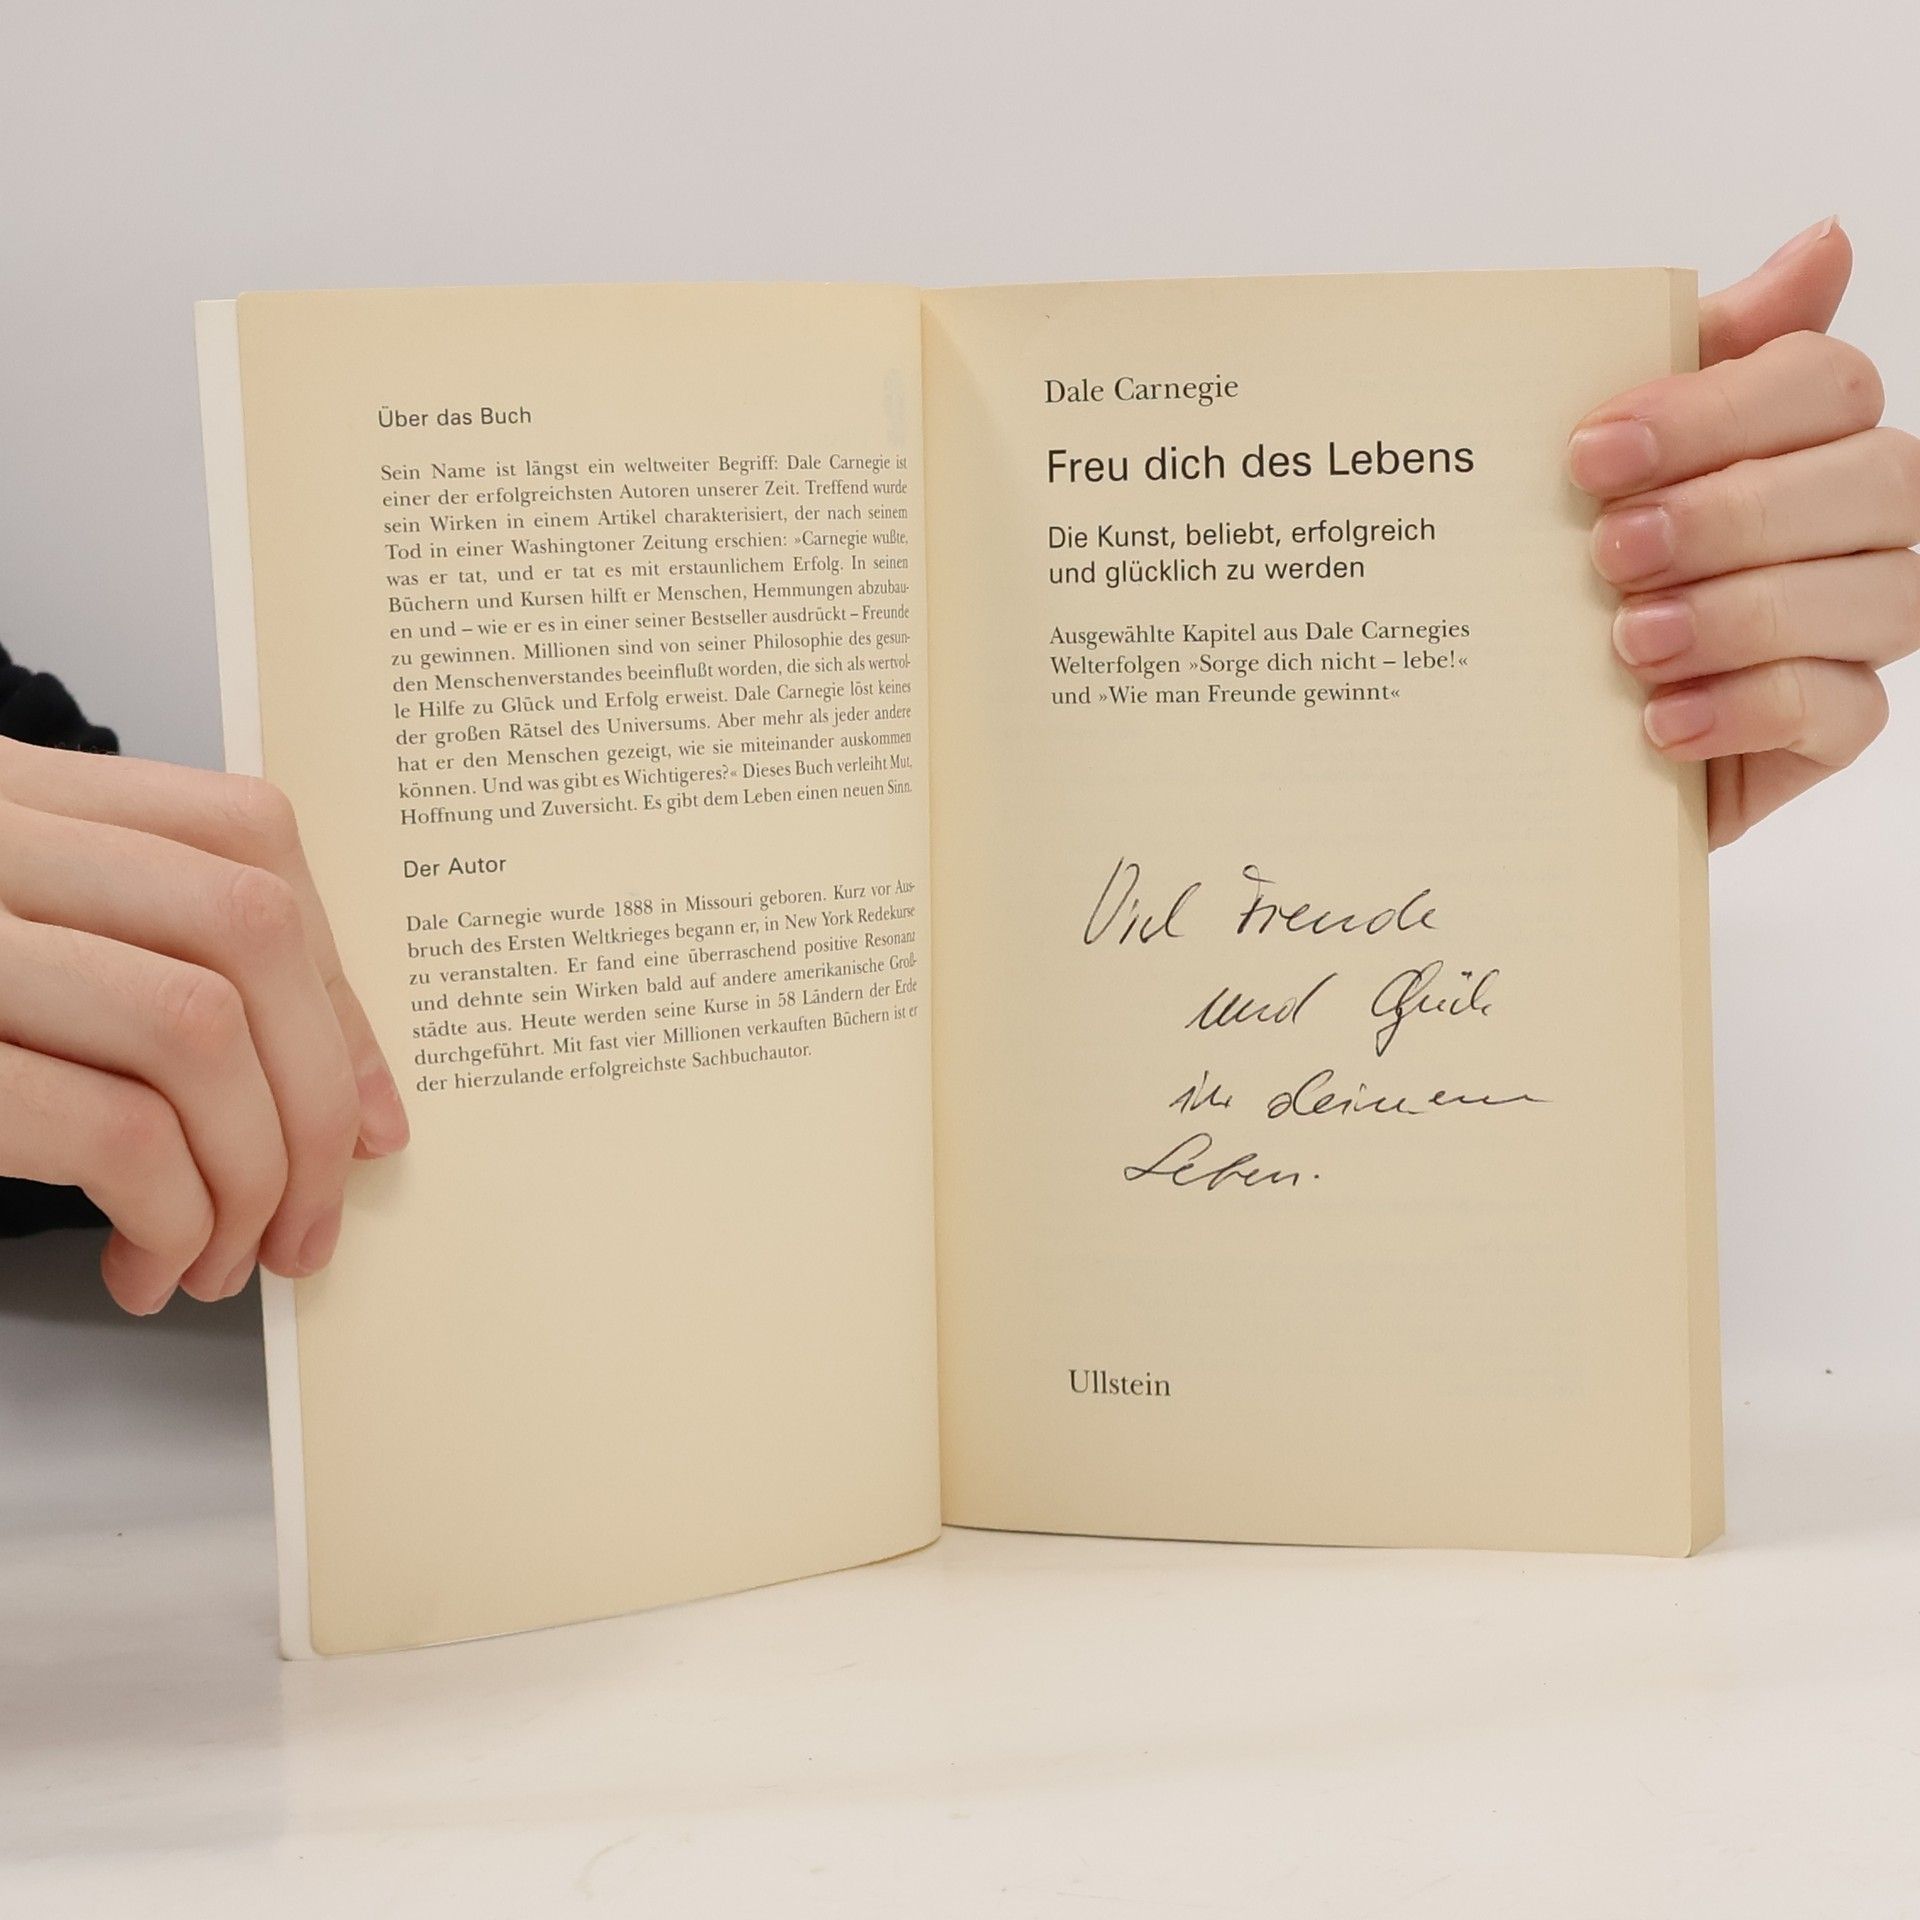 Über das Buch
Sein Name ist längst ein weltweiter Begriff: Dale Carnegie ist
einer der erfolgreichsten Autoren unserer Zeit. Treffend wurde
sein Wirken in einem Artikel charakterisiert, der nach seinem
Tod in einer Washingtoner Zeitung erschien: »Carnegie wußte,
was er tat, und er tat es mit erstaunlichem Erfolg. In seinen
Büchern und Kursen hilft er Menschen, Hemmungen abzubau-
en und – wie er es in einer seiner Bestseller ausdrückt – Freunde
zu gewinnen. Millionen sind von seiner Philosophie des gesun-
den Menschenverstandes beeinflußt worden, die sich als wertvol-
le Hilfe zu Glück und Erfolg erweist. Dale Carnegie löst keines
der großen Rätsel des Universums. Aber mehr als jeder andere
hat er den Menschen gezeigt, wie sie miteinander auskommen
können. Und was gibt es Wichtigeres?« Dieses Buch verleiht Mut,
Hoffnung und Zuversicht. Es gibt dem Leben einen neuen Sinn.
Der Autor
Dale Carnegie wurde 1888 in Missouri geboren. Kurz vor Aus-
bruch des Ersten Weltkrieges begann er, in New York Redekurse
zu veranstalten. Er fand eine überraschend positive Resonanz
und dehnte sein Wirken bald auf andere amerikanische Groß-
städte aus. Heute werden seine Kurse in 58 Ländern der Erde
durchgeführt. Mit fast vier Millionen verkauften Büchern ist er
der hierzulande erfolgreichste Sachbuchautor.
Dale Carnegie
Freu dich des Lebens
Die Kunst, beliebt, erfolgreich
und glücklich zu werden
Ausgewählte Kapitel aus Dale Carnegies
Welterfolgen »Sorge dich nicht – lebe!«
und »Wie man Freunde gewinnt«
Viel Freude
und Glück
in deinem
Leben.
Ullstein